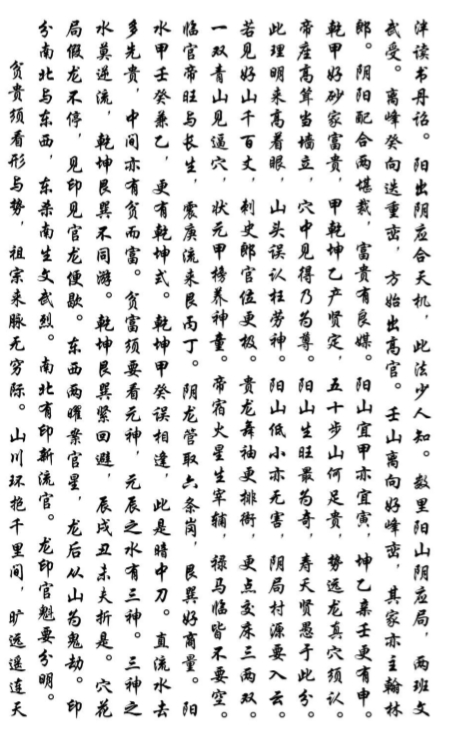 洋读书丹诏。阳出阴应合天机，此法少人知。数里阳山阴应局，两班文
武受。离峰癸向迭重峦，方始出高官。壬山离向好峰峦，其家亦主翰林
郎。阴阳配合两堪裁，富貴有良媒。阳山宜甲亦宜寅，坤乙亲壬更有申。
乾甲好砂家富貴，甲乾坤乙产贤定，五十步山何足貴，势远龙真穴须认。
帝座高耸当墙立，穴中见得乃为尊。阳山生旺最为奇，寿夭贤愚于此分。
此理明来高着眼，山头误认枉劳神。阳山低小亦无害，阴局村源要入云。
若见好山千百丈，刺史郎官位更极。貴龙舞袖更排衙，更点交床三两双。
一双青山见逼穴，状元甲榜养神童。帝宿火星生宰辅，禄马临皆不要空。
临官帝旺与长生，震庚流来艮丙丁。阴龙管取六条岗，艮巽好商量。阳
水甲壬癸兼乙，更有乾坤式。乾坤甲癸误相逢，此是暗中刀。直流水去
多先貴，中间亦有贫而富。贫富须要看元神，元辰之水有三神。三神之
水莫逆流，乾坤艮巽不同游。乾坤艮巽紧回避，辰戌丑未夫折是。穴花
局假龙不停，见印见官龙便歇。东西两曜案官星，龙后从山为鬼劫。印
分南北与东西，东杀南生文武烈。南北有印新流官。龙印官魁要分明。
贫貴须看形与势，祖宗来脉无穷际。山川环抱千里间，旷远遥连天